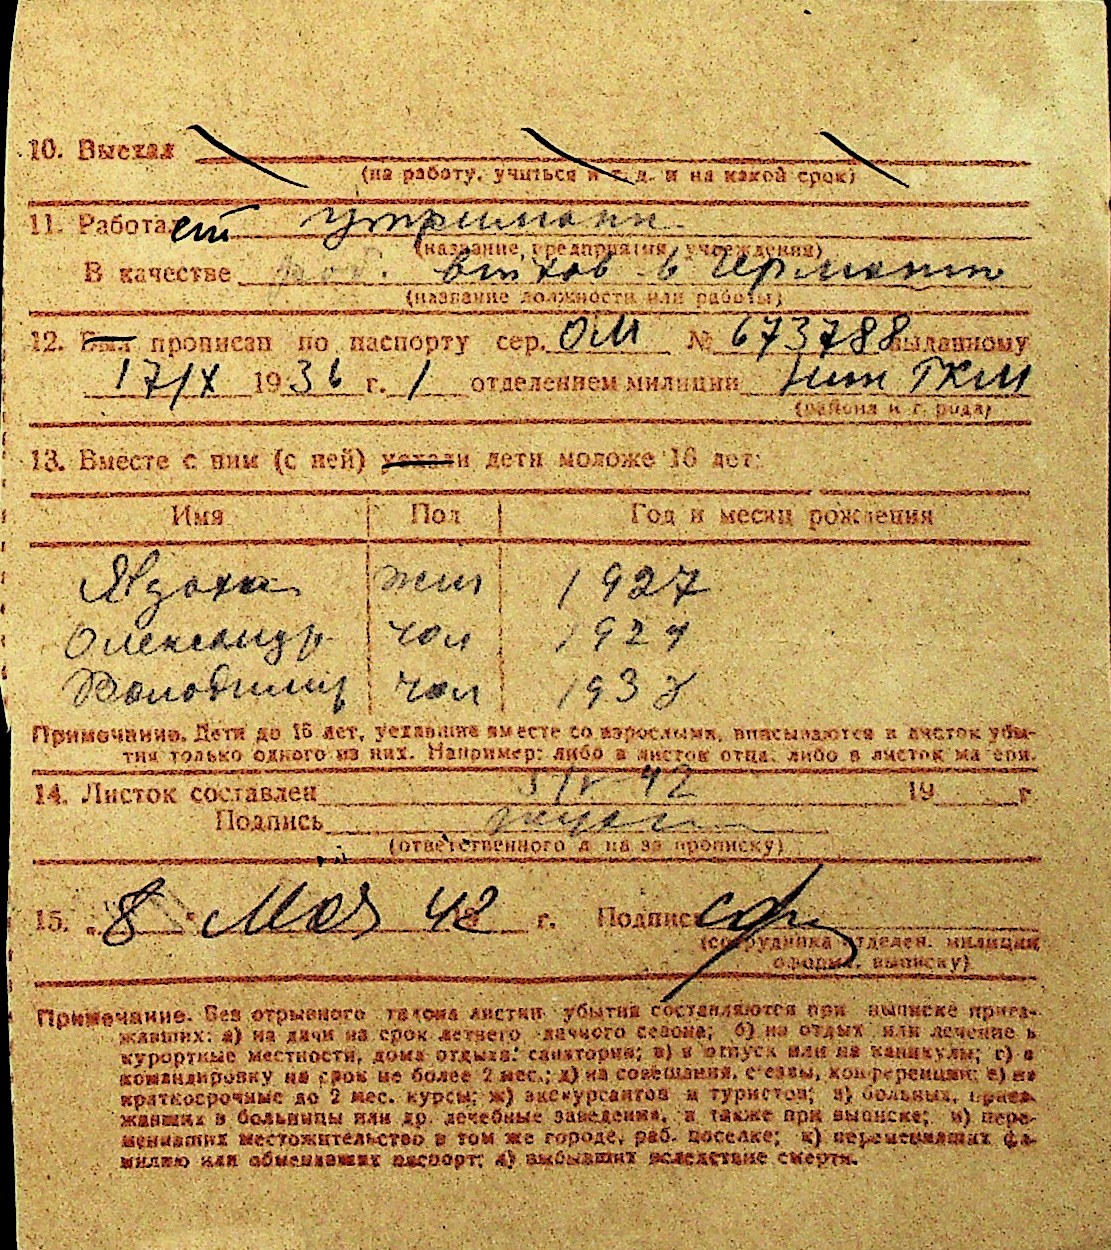 10. Выехал
(на работу, учиться и т. д. и на какой срок)
11. Работает утриманн
(название, предприятия, учреждения)
В качестве
(название должности или работы)
12. Был прописан по паспорту сер. ОМ № 673788 выданному
17/X 1936 г. 1 отделением милиции ГКМ
(района и г. рода)
13. Вместе с ним (с ней) уехали дети моложе 16 лет:
Имя Пол Год и месяц рождения
1927
Олександр чол
Володимир чол
Примечание. Дети до 16 лет, уехавшие вместе со взрослыми, вписываются в листок убы-
тия только одного из них. Например: либо в листок отца, либо в листок ма ери.
14. Листок составлен 5/V 42 19 г
Подпись
(ответственного л на за прописку)
15. „8" Мая 42 19 г. Подпись
(сотрудника отделен. милиции
оформ. выписку)
Примечание. Без отрывного талона листки убытия составляются при выписке приез-
жавших: а) на дачи на срок летнего дачного сезона; б) на отдых или лечение в
курортные местности, дома отдыха, санатории; в) в отпуск или на каникулы; г) в
командировку на срок не более 2 мес.; д) на совещания, с'езды, конференции; е) на
краткосрочные до 2 мес. курсы; ж) экскурсантов и туристов; з) больных, приез-
жавших в больницы или др. лечебные заведения, а также при выписке; и) пере-
менивших местожительство в том же городе, раб. поселке; к) переменивших фа-
милию или обменявших паспорт; л) выбывших вследствие смерти.